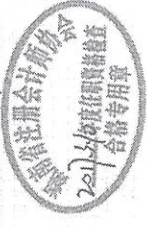 南省注册会计师协会
年度任职资格检查
合格专用章